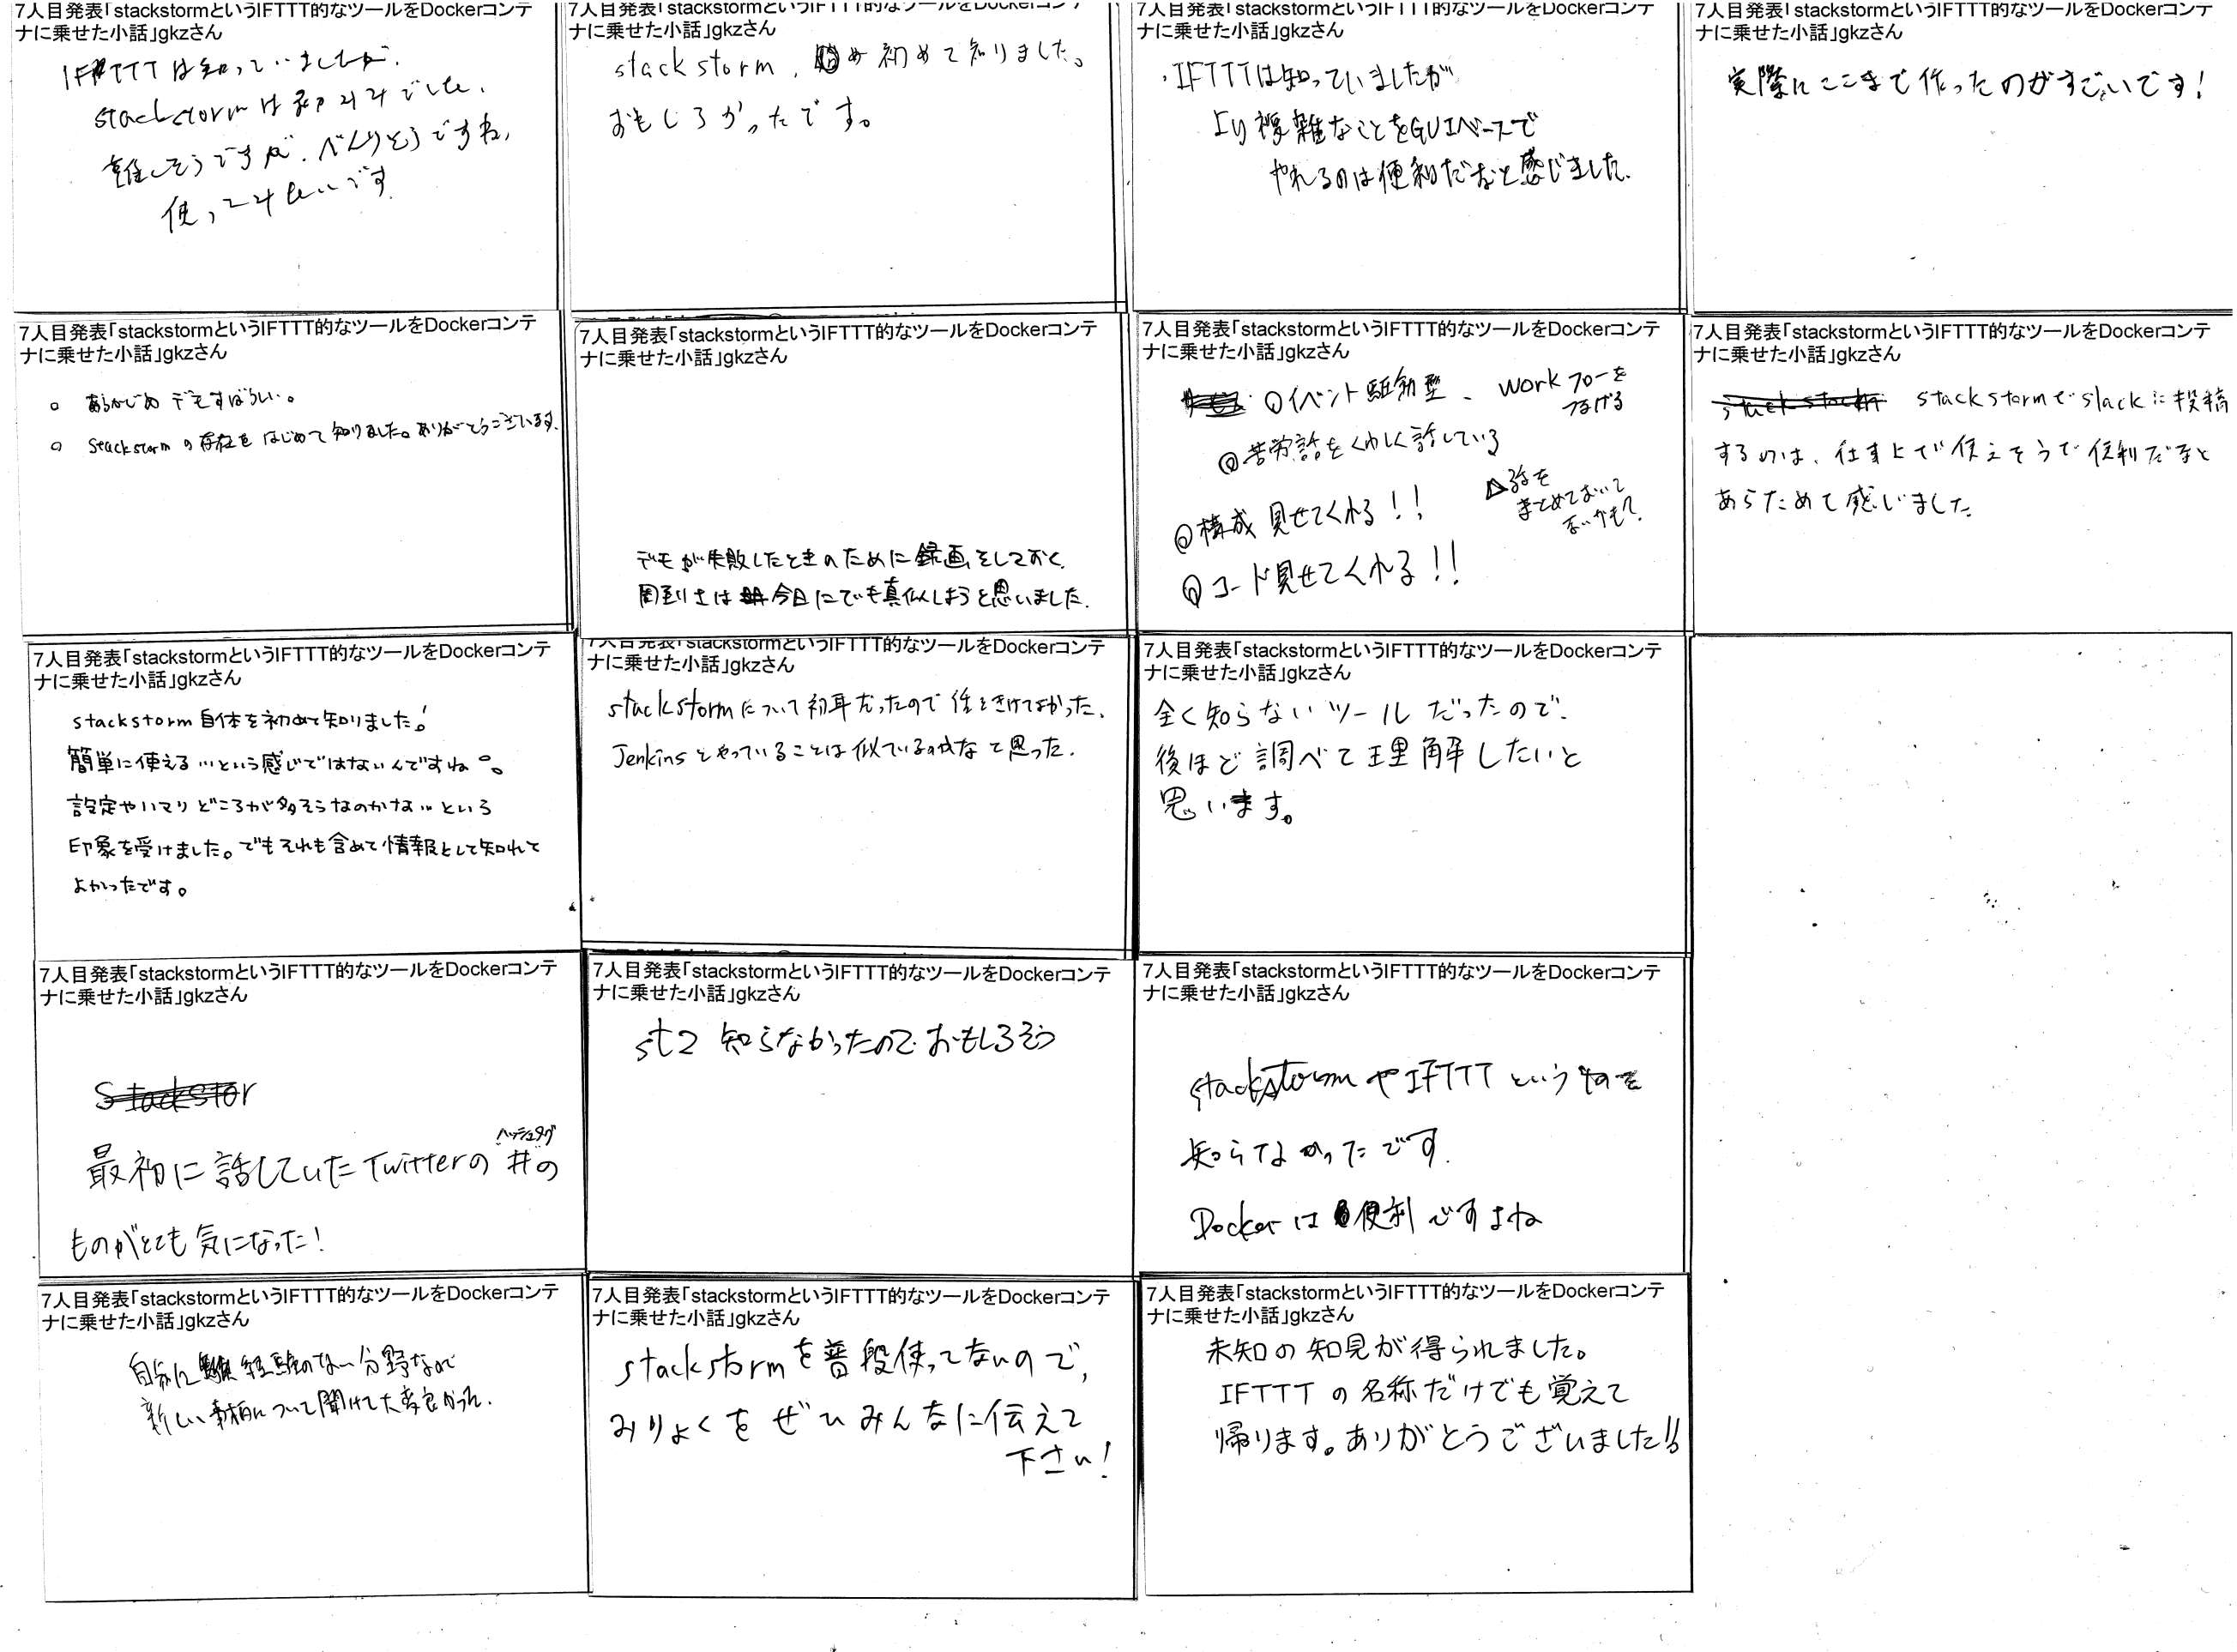 7人目発表「stackstormというIFTTT的なツールをDockerコンテ
ナに乗せた小話」gkzさん
IFTTTは知っていましたが、
stackstormは初耳でした、
難しそうですが、べんりそうですね、
使ってみたいです
7人目発表「stackstormというIFTTT的なツールをDockerコンテ
ナに乗せた小話」gkzさん
stackstorm、初めて知りました。
おもしろかったです。
7人目発表「stackstormというIFTTT的なツールをDockerコンテ
ナに乗せた小話」gkzさん
・IFTTTは知っていましたが
より複雑なことをGUIベースで
やれるのは便利だなと感じました.
7人目発表「stackstormというIFTTT的なツールをDockerコンテ
ナに乗せた小話」gkzさん
実際にここまで作ったのがすごいです!
7人目発表「stackstormというIFTTT的なツールをDockerコンテ
ナに乗せた小話」gkzさん
○ あらかじめデモすばらしい。
○ stackstormの存在をはじめて知りました。ありがとうございます.
7人目発表「stackstormというIFTTT的なツールをDockerコンテ
ナに乗せた小話」gkzさん
デモが失敗したときのために録画をしておく
周到さは今日にでも真似しようと思いました.
7人目発表「stackstormというIFTTT的なツールをDockerコンテ
ナに乗せた小話」gkzさん
◎イベント駆動型、workフローを
つなげる
◎苦労話をくわしく話している
△話を
まとめておいて
よいかも?
◎構成見せてくれる!!
◎コード見せてくれる!!
7人目発表「stackstormというIFTTT的なツールをDockerコンテ
ナに乗せた小話」gkzさん
stackstormでslackに投稿
するのは、仕事上で使えそうで便利だなと
あらためて感じました.
7人目発表「stackstormというIFTTT的なツールをDockerコンテ
ナに乗せた小話」gkzさん
stackstorm自体を初めて知りました!
簡単に使える…という感じではないんですね。
設定やいじりどころが多そうなのかな…という
印象を受けました。でもそれも含めて情報として知れて
よかったです。
7人目発表「stackstormというIFTTT的なツールをDockerコンテ
ナに乗せた小話」gkzさん
stackstormについて初耳だったので話をきけてよかった、
Jenkinsとやっていることは似ているのかなと思った.
7人目発表「stackstormというIFTTT的なツールをDockerコンテ
ナに乗せた小話」gkzさん
全く知らないツールだったので、
後ほど調べて理解したいと
思います。
7人目発表「stackstormというIFTTT的なツールをDockerコンテ
ナに乗せた小話」gkzさん
Stackstor
ハッシュタグ
最初に話していたTwitterの#の
ものがとても気になった!
7人目発表「stackstormというIFTTT的なツールをDockerコンテ
ナに乗せた小話」gkzさん
st2 知らなかったので おもしろそう
7人目発表「stackstormというIFTTT的なツールをDockerコンテ
ナに乗せた小話」gkzさん
stackstormやIFTTTというものを
知らなかったです.
Dockerは便利ですよね
7人目発表「stackstormというIFTTT的なツールをDockerコンテ
ナに乗せた小話」gkzさん
自分に経験のない分野なので
新しい事柄について聞けて大変良かった.
7人目発表「stackstormというIFTTT的なツールをDockerコンテ
ナに乗せた小話」gkzさん
stackstormを普段使ってないので,
みりょくをぜひみんなに伝えて
下さい!
7人目発表「stackstormというIFTTT的なツールをDockerコンテ
ナに乗せた小話」gkzさん
未知の知見が得られました。
IFTTTの名称だけでも覚えて
帰ります。ありがとうございました!!